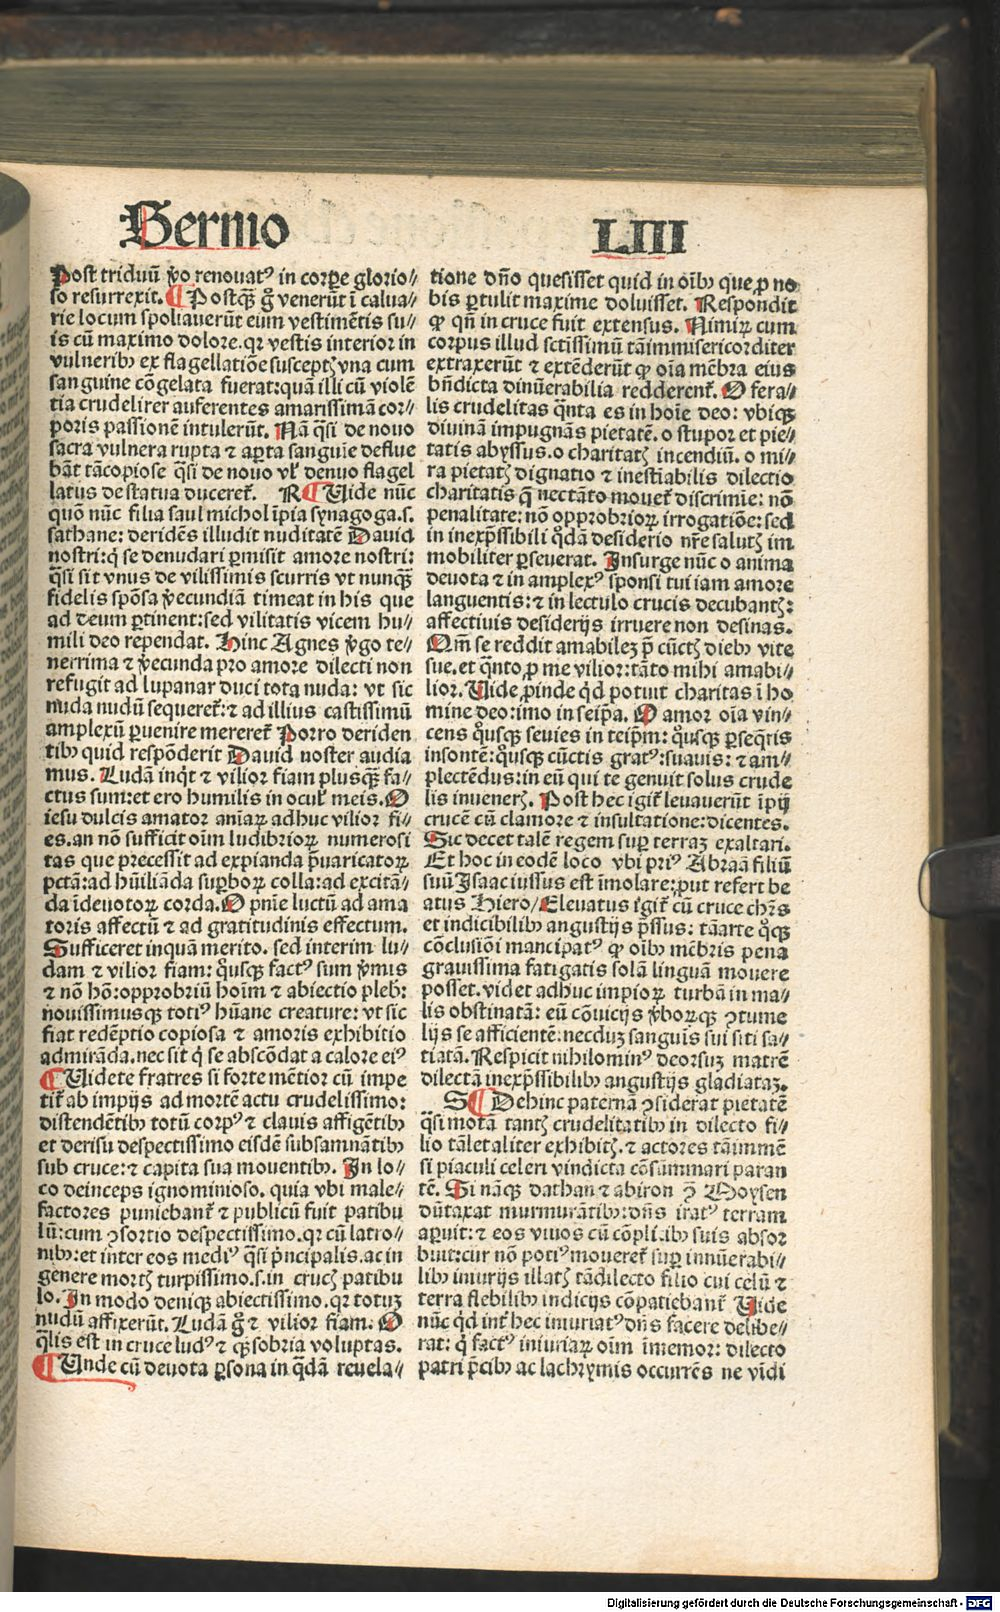 Sermo LIII
Post triduū v̄o renouatꝰ in corpe glorio⸗
so resurrexit. ¶ Postqꝫ g̊ venerūt ī calua⸗
rie locum spoliauerūt eum vestimētis su⸗
is cū maximo dolore. qꝛ vestis interior in
vulneribꝫ ex flagellatiōe susceptꝭ vna cum
sanguine cōgelata fuerat: quā illi cū violē
tia crudelirer auferentes amarissimā cor⸗
poris passionē intulerūt. Nā q̄si de nouo
sacra vulnera rupta ⁊ aꝑta sanguīe deflue
bāt tācopiose q̄si de nouo vl̓ denuo flagel
latus de statua duceret̓. R ¶ Uide nūc
quō nūc filia saul michol īpia synagoga .s.
sathane: deridēs illudit nuditatē Dauid
nostri: q̇ se denudari ꝑmisit amore nostri:
q̄si sit vnus de vilissimis scurris vt nunqꝫ
fidelis spōsa v̓ecundiā timeat in his que
ad deum ꝑtinent: sed vilitatis vicem hu⸗
mili deo rependat. Hinc Agnes v̓go te⸗
nerrima ⁊ v̓ecunda pro amore dilecti non
refugit ad lupanar duci tota nuda: vt sic
nuda nudū sequeret̓: ⁊ ad illius castissimū
amplexū ꝑuenire mereret̓ Porro deriden
tibꝫ quid respōderit Dauid noster audia
mus. Ludā inq̇t ⁊ vilior fiam plusqꝫ fa⸗
ctus sum: et ero humilis in ocul̓ meis. O
iesu dulcis amator aniaꝝ adhuc vilior fi⸗
es. an nō sufficit oīm ludibrioꝝ numerosi
tas que precessit ad expianda p̄uaricatoꝝ
pctā: ad hūiliāda suꝑboꝝ colla: ad excitā⸗
da īdeuotoꝝ corda. O pnīe luctū ad ama
toris affectū ⁊ ad gratitudinis effectum.
Sufficeret inquā merito. sed interim lu⸗
dam ⁊ vilior fiam: q̊usqꝫ factꝰ sum v̓mis
⁊ nō hō: opprobriū hoīm ⁊ abiectio pleb̓:
nouissimusqꝫ totiꝰ hūane creature: vt sic
fiat redēptio copiosa ⁊ amoris exhibitio
admirāda. nec sit q̇ se abscōdat a calore eiꝰ
¶ Uidete fratres si forte mētior cū impe
tit̓ ab impijs ad mortē actu crudelissimo:
distendētibꝫ totū corpꝰ ⁊ clauis affigētibꝫ
et derisu despectissimo eisdē subsamnātibꝫ
sub cruce: ⁊ capita sua mouentibꝫ. In lo⸗
co deinceps ignominioso. quia vbi male⸗
factores puniebant̓ ⁊ publicū fuit patibu
lū: cum ꝯsortio despectissimo. qꝛ cū latro⸗
nibꝫ: et inter eos mediꝰ q̄si pͥncipalis. ac in
genere mortꝭ turpissimo .s. in crucꝭ patibu
lo. In modo deniqꝫ abiectissimo. qꝛ totuꝫ
nudū affixerūt. Ludā g̊ ⁊ vilior fiam. O
q̄lis est in cruce ludꝰ ⁊ qꝫ sobria voluptas.
¶ Unde cū deuota ꝑsona in q̇dā reuela⸗
tione dn̄o quesisset quid in oībꝫ que ꝓ no
bis ꝑtulit maxime doluisset. Respondit
ꝙ qn̄ in cruce fuit extensus. Nimiꝝ cum
corpus illud sctissimū tā immisericorditer
extraxerūt ⁊ extēderūt ꝙ oīa mēbra eius
bn̄dicta dinūerabilia redderent̓. O fera⸗
lis crudelitas q̄nta es in hoīe deo: vbiqꝫ
diuinā impugnās pietatē. o stupor et pie⸗
tatis abyssus. o charitatꝭ incendiū. o mi⸗
ra pietatꝭ dignatio ⁊ inestīabilis dilectio
charitatis q̄ nec tāto mouet̓ discrimīe: nō
penalitate: nō opprobrioꝝ irrogatiōe: sed
in inexp̄ssibili q̊dā desiderio nr̄e salutꝭ im
mobiliter ꝑseuerat. Insurge nūc o anima
deuota ⁊ in amplexꝰ sponsi tui iam amore
languentis: ⁊ in lectulo crucis decubantꝭ:
affectiuis desiderijs irruere non desinas.
Qm̄ se reddit amabileꝫ p̄ cūctꝭ diebꝫ vite
sue. et q̄nto ꝓ me vilior: tāto mihi amabi⸗
lior. Uide ꝓinde q̇d potuit charitas ī ho
mine deo: imo in seip̄a. O amor oīa vin⸗
cens q̊usqꝫ seuies in teip̄m: q̊usqꝫ ꝑseq̄ris
insontē: q̊usqꝫ cūctis gratꝰ: suauis: ⁊ am⸗
plectēdus: in eū qui te genuit solus crude
lis inuenerꝭ. Post hec igit̓ leuauerūt īpij
crucē cū clamore ⁊ insultatione: dicentes.
Sic decet talē regem suꝑ terraꝫ exaltari.
Et hoc in eodē loco vbi priꝰ Abraā filiū
suū Isaac iussus est īmolare: put refert be
atus Hiero/ Eleuatus igit̓ cū cruce chrꝰs
et indicibilibꝫ angustijs p̄ssus: tā arte q̊qꝫ
cōclusiōi mancipatꝰ ꝙ oībꝫ mēbris pena
grauissima fatigatis solā linguā mouere
posset. videt adhuc impioꝝ turbā in ma⸗
lis obstinatā: eū cōuicijs v̓borꝫqꝫ ꝯtume
lijs se afficientē: necduꝫ sanguīs sui siti sa⸗
tiatā. Respicit nihilominꝰ deorsuꝫ matrē
dilectā inexp̄ssibilibꝫ angustijs gladiataꝫ.
S ¶ Dehinc paternā ꝯsiderat pietatē
q̄si motā tantꝭ crudelitatibꝫ in dilecto fi⸗
lio tā letaliter exhibitꝭ. ⁊ actores tā immē
si piaculi celeri vindicta cōsūmmari paran
tē. Si nāqꝫ dathan ⁊ abiron ꝯ̄ Moysen
dūtaxat murmurātibꝫ: dn̄s iratꝰ terram
aꝑuit: ⁊ eos viuos cū cōplicibꝫ suis absor
buit: cur nō potiꝰ moueret̓ suꝑ innūerabi⸗
libꝫ iniurijs illatꝭ tā dilecto filio cui celū ⁊
terra flebilibꝫ indicijs cōpatiebant̓ Uide
nūc q̇d int̓ hec iniuriatꝰ dn̄s facere delibe⸗
rat: q̇ factꝰ iniuriaꝝ oīm īmemor: dilecto
patri p̄cibꝫ ac lachrymis occurrēs ne vidi
Digitalisierung gefördert durch die Deutsche Forschungsgemeinschaft - DFG